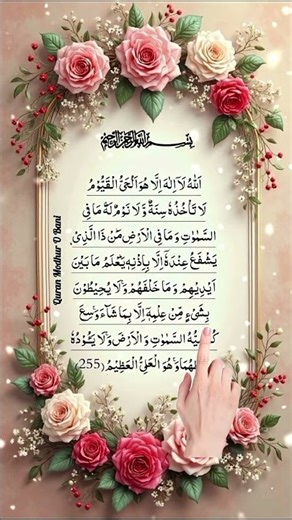 بسم الله الرحمن الرحيم
اَللّٰهُ لَاۤ اِلٰهَ اِلَّا هُوَ اَلْحَیُّ الْقَیُّوْمُ
لَا تَاْخُذُهٗ سِنَةٌ وَّلَا نَوْمٌ لَهٗ مَا فِی
السَّمٰوٰتِ وَمَا فِی الْاَرْضِ مَنْ ذَا الَّذِیْ
یَشْفَعُ عِنْدَهٗۤ اِلَّا بِاِذْنِهٖ یَعْلَمُ مَا بَیْنَ
اَیْدِیْهِمْ وَمَا خَلْفَهُمْ وَلَا یُحِیْطُوْنَ
بِشَیْءٍ مِّنْ عِلْمِهٖۤ اِلَّا بِمَا شَآءَ وَسِعَ
السَّمٰوٰتِ وَالْاَرْضَ وَلَا یَـُٔوْدُهٗ
وَهُوَ الْعَلِیُّ الْعَظِیْمُ (255)
Quran Modhur O Bani